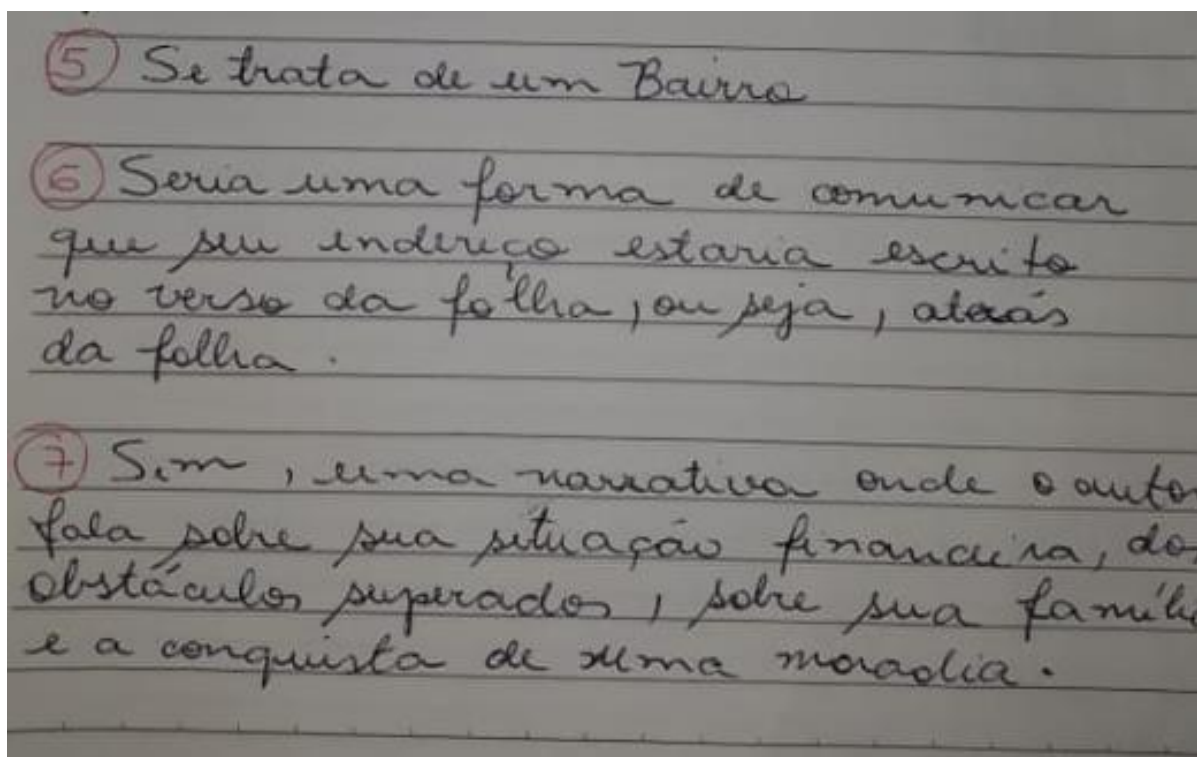 5 Se trata de um Bairro
6 Seria uma forma de comunicar
que seu endereço estaria escrito
no verso da folha, ou seja, atrás
da folha.
7 Sim, uma narrativa onde o autor
fala sobre sua situação financeira, do
obstáculos superados, sobre sua famíli
e a conquista de uma moradia.